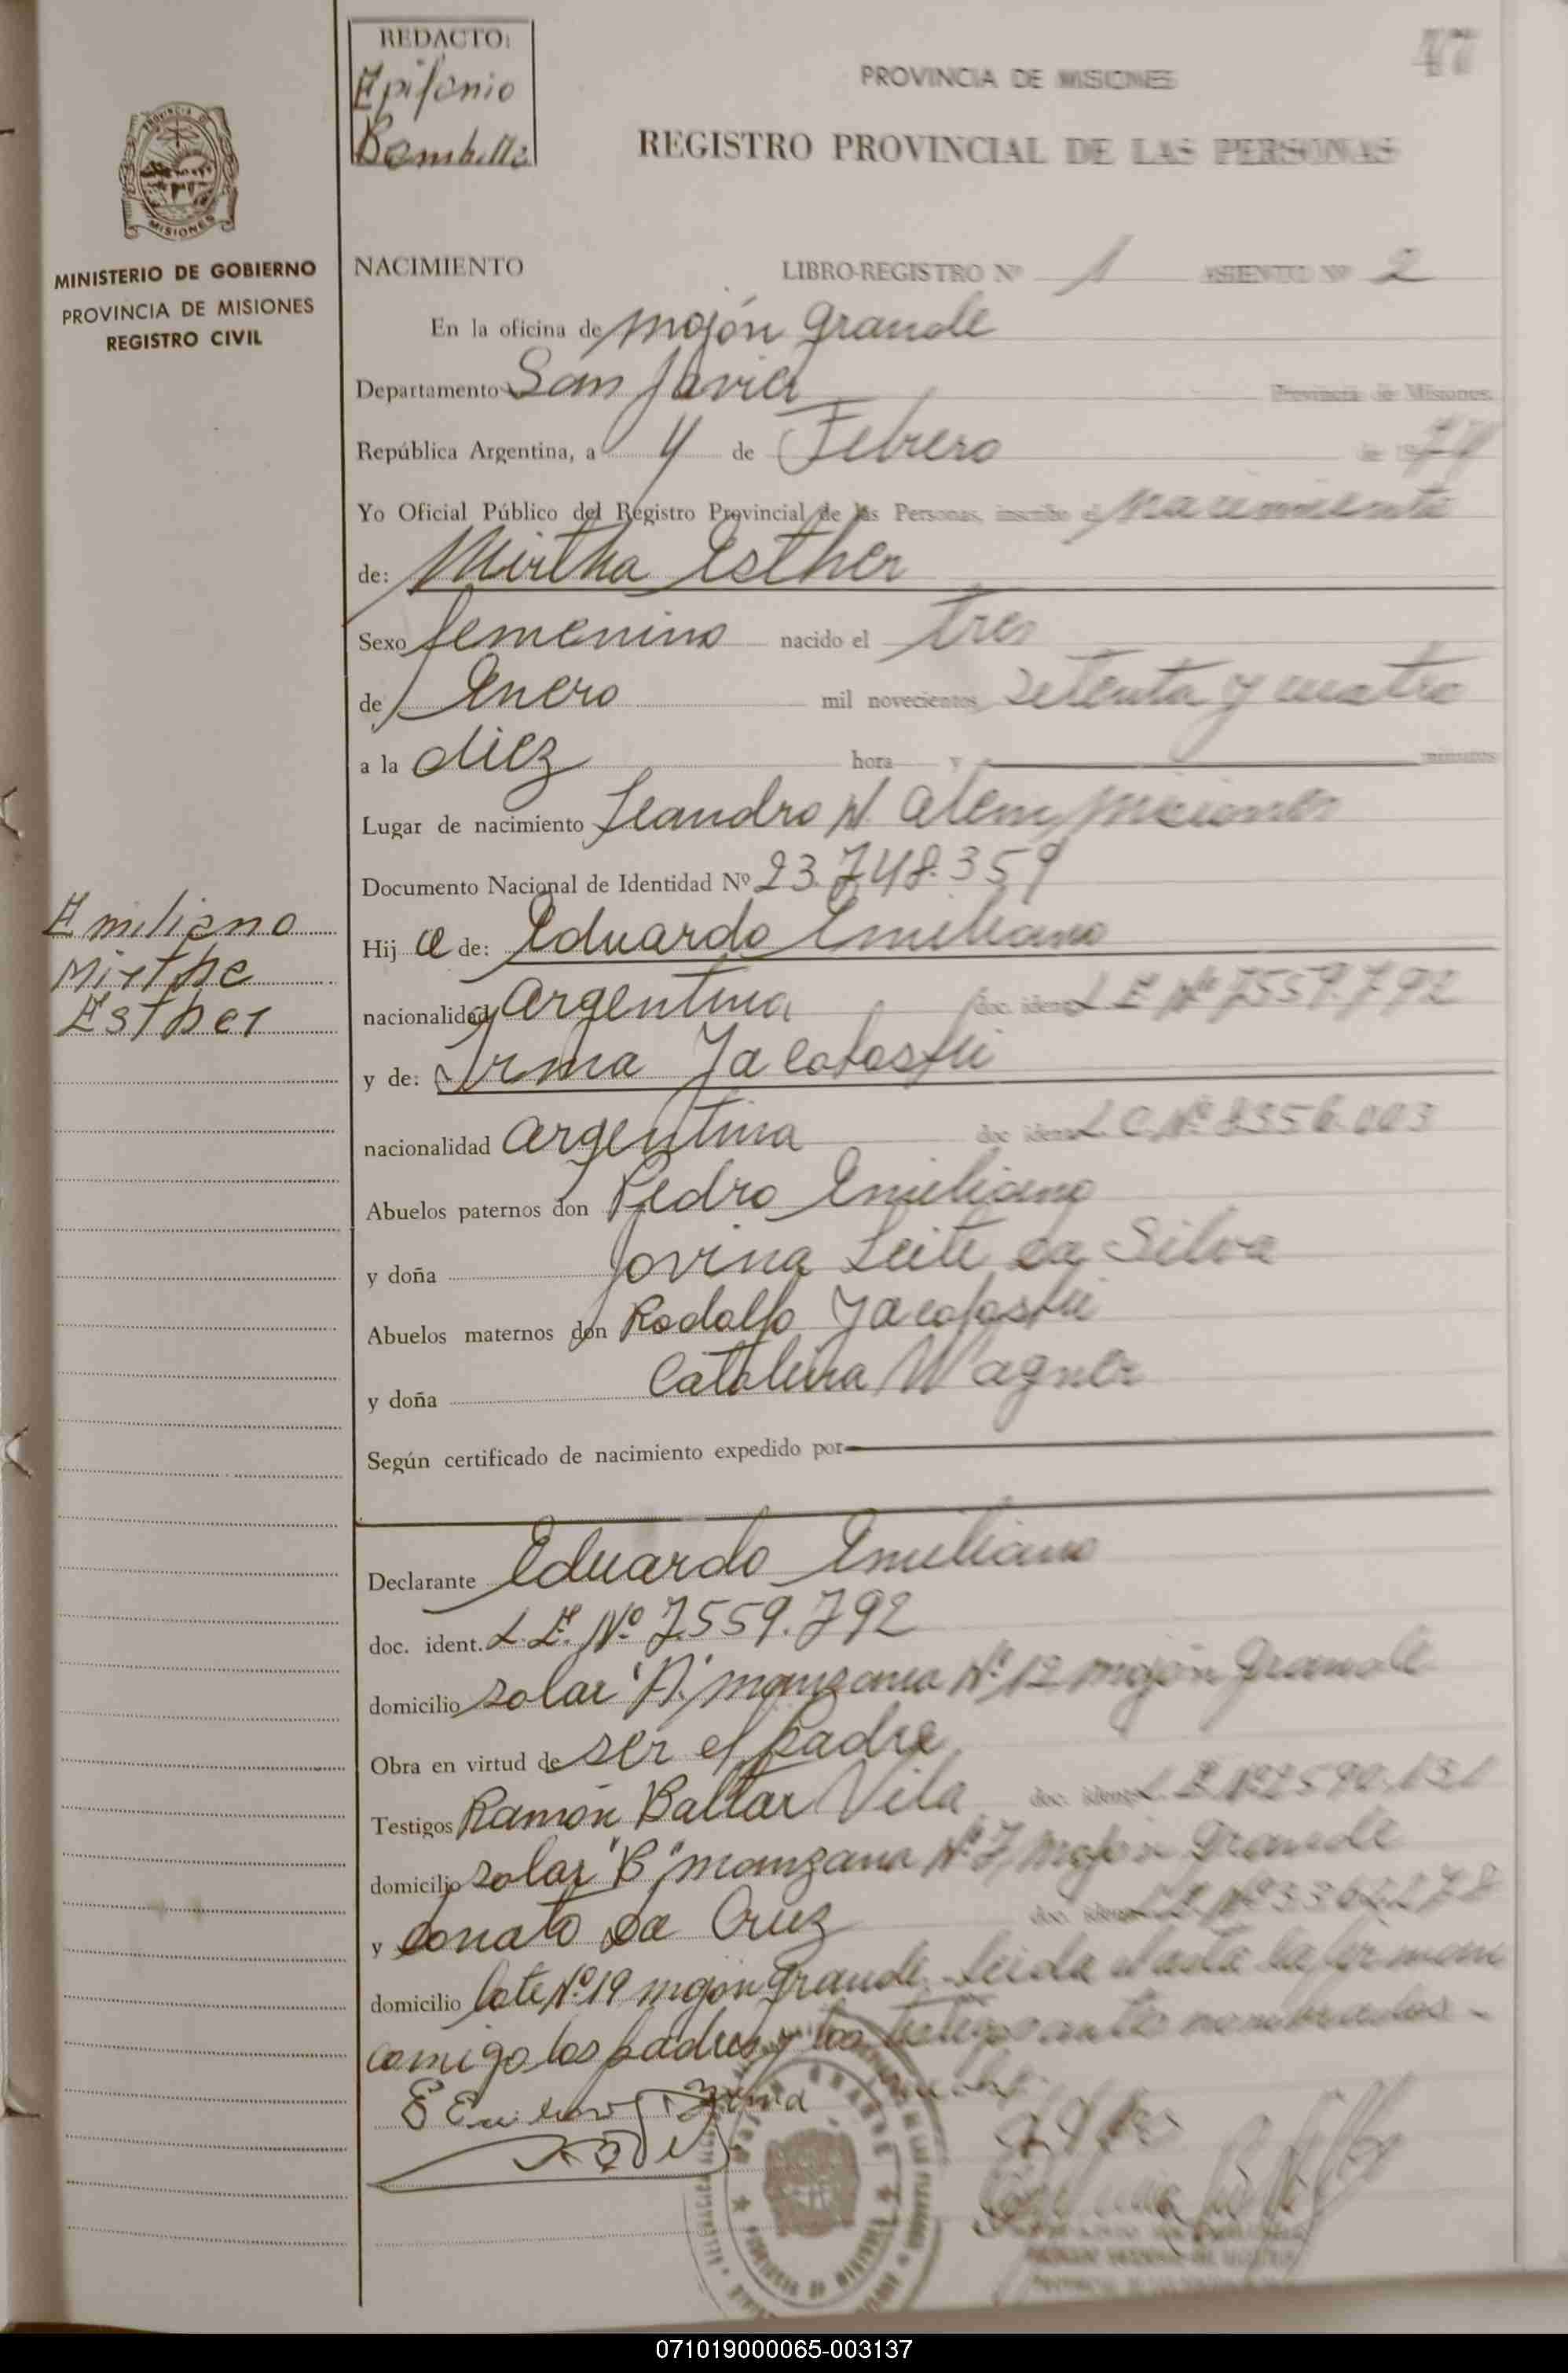 47
REDACTO:
Epifanio
PROVINCIA DE MISIONES
REGISTRO PROVINCIAL DE LAS PERSONAS
PROVINCIA D
MISIONES
MINISTERIO DE GOBIERNO
PROVINCIA DE MISIONES
REGISTRO CIVIL
NACIMIENTO LIBRO-REGISTRO Nº 1 ASIENTO Nº 2
En la oficina de mojón grande
Departamento San Javier Provincia de Misiones.
República Argentina, a 4 de Febrero de 1974
Yo Oficial Público del Registro Provincial de las Personas, inscribo el nacimiento
de: Mirtha Esther
Sexo femenino nacido el tres
de Enero mil novecientos setenta y cuatro
a la diez hora y minutos
Lugar de nacimiento Leandro N. Alem, misiones
Documento Nacional de Identidad Nº 23.748.359
Emiliano
Mirtha
Esther
Hij a de: Eduardo Emiliano
nacionalidad Argentina doc. ident. L E Nº 7559.792
y de: Irma Jacoboski
nacionalidad argentina doc. ident. L.C. Nº 8356.003
Abuelos paternos don Pedro Emiliano
y doña Jovina Leite da Silva
Abuelos maternos don Rodolfo Jacoboski
y doña Catalina Wagner
Según certificado de nacimiento expedido por
Declarante Eduardo Emiliano
doc. ident. L.E. Nº 7.559.792
domicilio solar "A" manzana Nº 12 mojón grande
Obra en virtud de ser el padre
Testigos Ramón Baltar Vila doc. ident. L.E. Nº 2590.131
domicilio solar "B" manzana Nº 7, mojón grande
y Donato da Cruz doc. ident. L.E. Nº 3362278
domicilio lote Nº 19 mojón grande. Leida el acta la firman
comigo los padres y los testigos antes nombrados.-
071019000065-003137